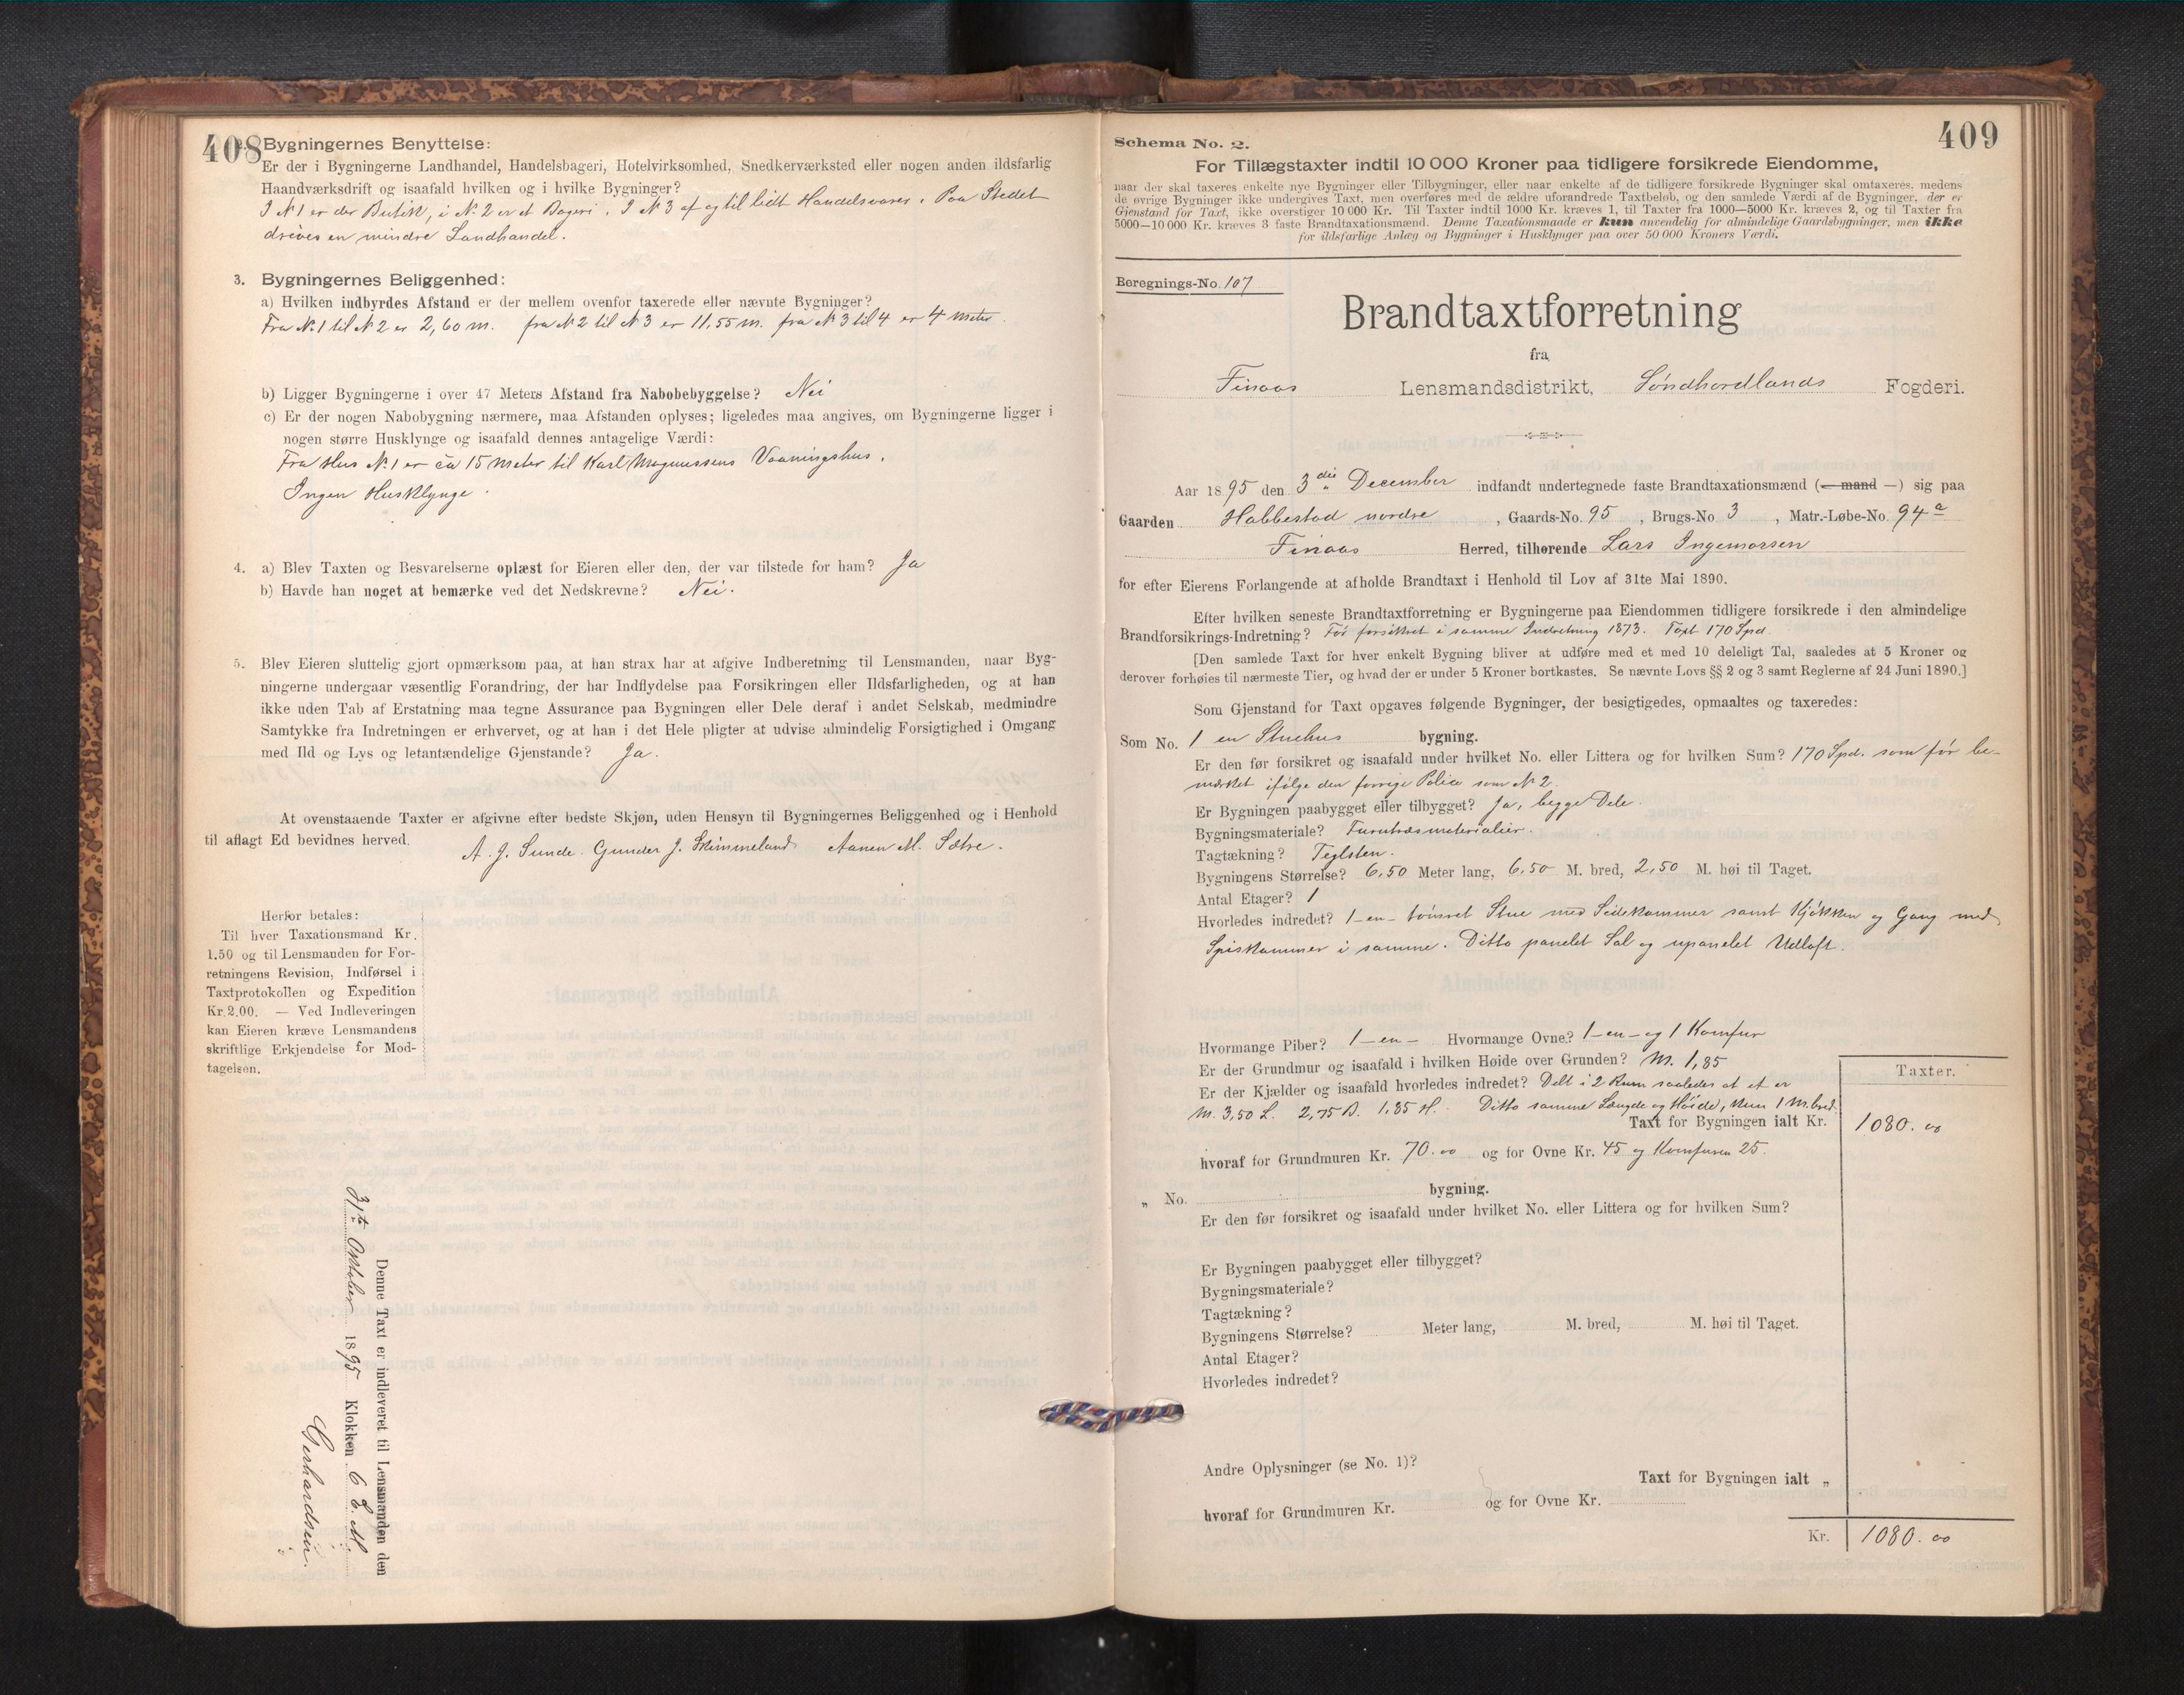 408
2. Bygningernes Benyttelse:
Er der i Bygningerne Landhandel, Handelsbageri, Hotelvirksomhed, Snedkerværksted eller nogen anden ildsfarlig
Haandværksdrift og isaafald hvilken og i hvilke Bygninger?
I № 1 er der Butik, i № 2 er et Bageri. I № 3 af og til lidt Handelsvarer. Paa Stedet
drives en mindre Landhandel.
3. Bygningernes Beliggenhed:
a) Hvilken indbyrdes Afstand er der mellem ovenfor taxerede eller nævnte Bygninger?
Fra № 1 til № 2 er 2,60 m. fra № 2 til № 3 er 11,55 m. fra № 3 til 4 er 4 meter.
b) Ligger Bygningerne i over 47 Meters Afstand fra Nabobebyggelse? Nei
c) Er der nogen Nabobygning nærmere, maa Afstanden oplyses; ligeledes maa angives, om Bygningerne ligger i
nogen større Husklynge og isaafald dennes antagelige Værdi:
Fra Hus № 1 er ca 15 meter til Karl Magnussens Vaaningshus.
Ingen Husklynge.
4. a) Blev Taxten og Besvarelserne oplæst for Eieren eller den, der var tilstede for ham? Ja
b) Havde han noget at bemærke ved det Nedskrevne? Nei.
5. Blev Eieren sluttelig gjort opmærksom paa, at han strax har at afgive Indberetning til Lensmanden, naar Byg-
ningerne undergaar væsentlig Forandring, der har Indflydelse paa Forsikringen eller Ildsfarligheden, og at han
ikke uden Tab af Erstatning maa tegne Assurance paa Bygningen eller Dele deraf i andet Selskab, medmindre
Samtykke fra Indretningen er erhvervet, og at han i det Hele pligter at udvise almindelig Forsigtighed i Omgang
med Ild og Lys og letantændelige Gjenstande? Ja.
At ovenstaaende Taxter er afgivne efter bedste Skjøn, uden Hensyn til Bygningernes Beliggenhed og i Henhold
til aflagt Ed bevidnes herved.
A. J. Sunde. Gunder J. Skimmeland Aanen M. Sætre.
Herfor betales:
Til hver Taxationsmand Kr.
1.50 og til Lensmanden for For-
retningens Revision, Indførsel i
Taxtprotokollen og Expedition
Kr. 2.00. — Ved Indleveringen
kan Eieren kræve Lensmandens
skriftlige Erkjendelse for Mod-
tagelsen.
Denne Taxt er indleveret til Lensmanden den
31te Oktober 1895 Klokken 6 E. M.
Gerhardsen.
409
Schema No. 2.
For Tillægstaxter indtil 10 000 Kroner paa tidligere forsikrede Eiendomme,
naar der skal taxeres enkelte nye Bygninger eller Tilbygninger, eller naar enkelte af de tidligere forsikrede Bygninger skal omtaxeres, medens
de øvrige Bygninger ikke undergives Taxt, men overføres med de ældre uforandrede Taxtbeløb, og den samlede Værdi af de Bygninger, der er
Gjenstand for Taxt, ikke overstiger 10 000 Kr. Til Taxter indtil 1000 Kr. kræves 1, til Taxter fra 1000—5000 Kr. kræves 2, og til Taxter fra
5000—10 000 Kr. kræves 3 faste Brandtaxationsmænd. Denne Taxationsmaade er kun anvendelig for almindelige Gaardsbygninger, men ikke
for ildsfarlige Anlæg og Bygninger i Husklynger paa over 50 000 Kroners Værdi.
Beregnings-No. 107
Brandtaxtforretning
fra
Finaas Lensmandsdistrikt, Søndhordlands Fogderi.
Aar 1895 den 3die December indfandt undertegnede faste Brandtaxationsmænd (— mand —) sig paa
Gaarden Habbestad nordre, Gaards-No. 95, Brugs-No 3, Matr.-Løbe-No. 94 a
Finaas Herred, tilhørende Lars Ingemorsen
for efter Eierens Forlangende at afholde Brandtaxt i Henhold til Lov af 31te Mai 1890.
Efter hvilken seneste Brandtaxtforretning er Bygningerne paa Eiendommen tidligere forsikrede i den almindelige
Brandforsikrings-Indretning? Før forsikret i samme Indretning 1873. Taxt 170 Spd.
[Den samlede Taxt for hver enkelt Bygning bliver at udføre med et med 10 deleligt Tal, saaledes at 5 Kroner og
derover forhøies til nærmeste Tier, og hvad der er under 5 Kroner bortkastes. Se nævnte Lovs §§ 2 og 3 samt Reglerne af 24 Juni 1890.]
Som Gjenstand for Taxt opgaves følgende Bygninger, der besigtigedes, opmaaltes og taxeredes:
Som No. 1 en Stuehus bygning.
Er den før forsikret og isaafald under hvilket No. eller Littera og for hvilken Sum? 170 Spd. som før be-
mærket ifølge den forrige Police som № 2.
Er Bygningen paabygget eller tilbygget? Ja, begge Dele.
Bygningsmateriale? Furutræsmaterialier.
Tagtækning? Teglsten.
Bygningens Størrelse? 6,50 Meter lang, 6,50 M. bred, 2,50 M. høi til Taget.
Antal Etager? 1
Hvorledes indredet? 1 —en— tømret Stue med Sidekammer samt Kjøkken og Gang med
Spiskammer i samme. Ditto panelet Sal og upanelet Udloft.
Hvormange Piber? 1 —en— Hvormange Ovne? 1 —en— og 1 Komfur
Er der Grundmur og isaafald i hvilken Høide over Grunden? M. 1,85
Er der Kjælder og isaafald hvorledes indredet? Delt i 2 Rum saaledes at et er
M. 3,50 L. 2,75 B. 1,85 H. Ditto samme Længde og Høide, kun 1 M. bred.
Taxter.
Taxt for Bygningen ialt Kr. 1080. 00
hvoraf for Grundmuren Kr. 70. 00 og for Ovne Kr. 45 og Komfuren 25.
„ No. bygning.
Er den før forsikret og isaafald under hvilket No. eller Littera og for hvilken Sum?
Er Bygningen paabygget eller tilbygget?
Bygningsmateriale?
Tagtækning?
Bygningens Størrelse? Meter lang, M. bred, M. høi til Taget.
Antal Etager?
Hvorledes indredet?
Andre Oplysninger (se No. 1)?
Taxt for Bygningen ialt „
hvoraf for Grundmuren Kr. og for Ovne Kr.
Kr. 1080. 00